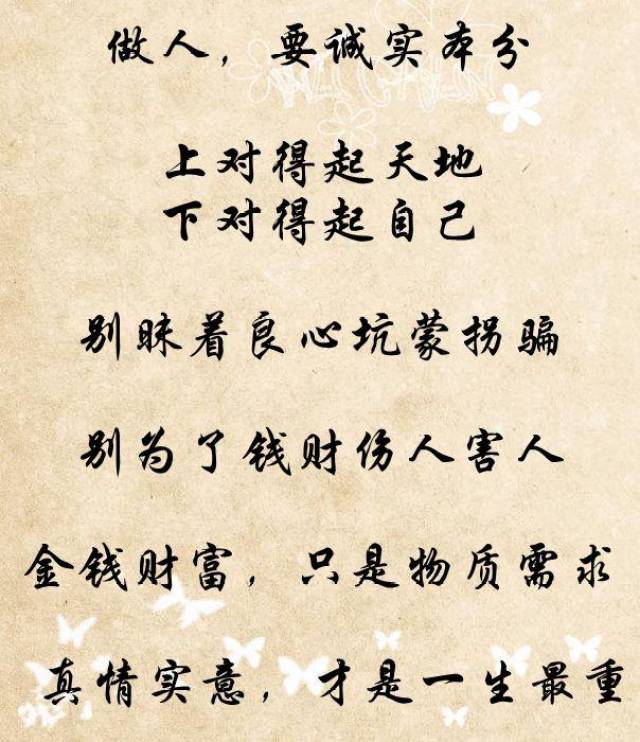 做人，要诚实本分
上对得起天地
下对得起自己
别昧着良心坑蒙拐骗
别为了钱财伤人害人
金钱财富，只是物质需求
真情实意，才是一生最重